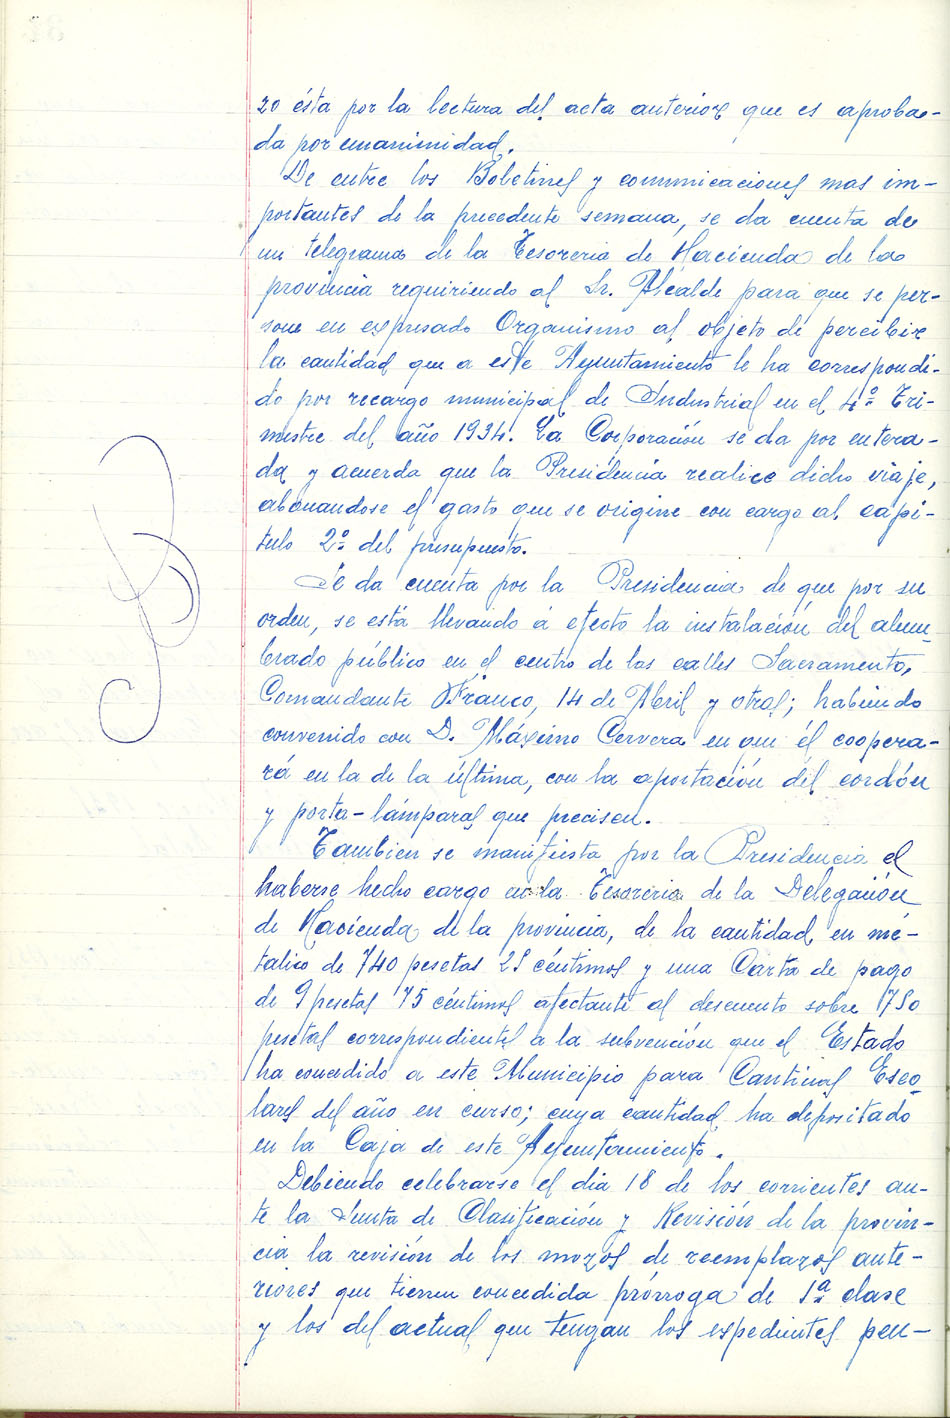 zo ésta por la lectura del acta anterior que es aproba-
da por unanimidad.
De entre los Boletines y comunicaciones mas im-
portantes de la precedente semana, se da cuenta de
un telegrama de la Tesoreria de Hacienda de la
provincia requiriendo al Sr. Alcalde para que se per-
sone en expresado Organismo al objeto de percibir
la cantidad que a este Ayuntamiento le ha correspondi-
do por recargo municipal de Industrial en el 4º Tri-
mestre del año 1934. La Corporación se da por entera-
da y acuerda que la Presidencia realice dicho viaje,
abonandose el gasto que se origine con cargo al capi-
tulo 2º del presupuesto.
Se da cuenta por la Presidencia de que por su
orden, se está llevando á efecto la instalación del alum-
brado público en el centro de las calles Sacramento,
Comandante Franco, 14 de Abril y otras; habiendo
convenido con D. Máximo Cervera en que él coopera-
rá en la de la última, con la aportación del cordón
y porta-lámparas que precisen.
Tambien se manifiesta por la Presidencia el
haberse hecho cargo en la Tesoreria de la Delegación
de Hacienda de la provincia, de la cantidad en me-
talico de 740 pesetas 25 céntimos y una Carta de pago
de 9 pesetas 75 céntimos afectante al descuento sobre 750
pesetas correspondientes a la subvención que el Estado
ha concedido a este Municipio para Cantinas Esco-
lares del año en curso; cuya cantidad ha depositado
en la Caja de este Ayuntamiento.
Debiendo celebrarse el dia 18 de los corrientes an-
te la Junta de Clasificación y Revisión de la provin-
cia la revisión de los mozos de reemplazos ante-
riores que tienen concedida prórroga de 1ª clase
y los del actual que tengan los expedientes pen-